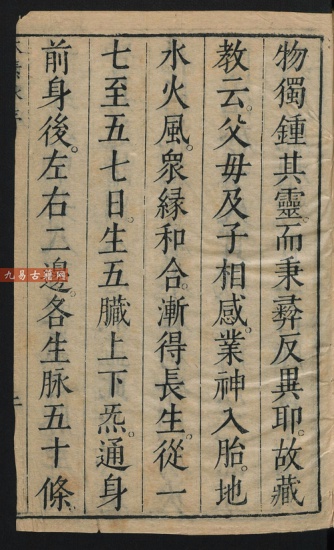 物獨鍾其靈。而秉彝反異耶。故藏
教云。父毋及子相感。業神入胎。地
水火風。衆縁和合。漸得長生。從一
七至五七日。生五臟上下炁。通身
前身後。左右二邊。各生脉五十條
九易古籍网